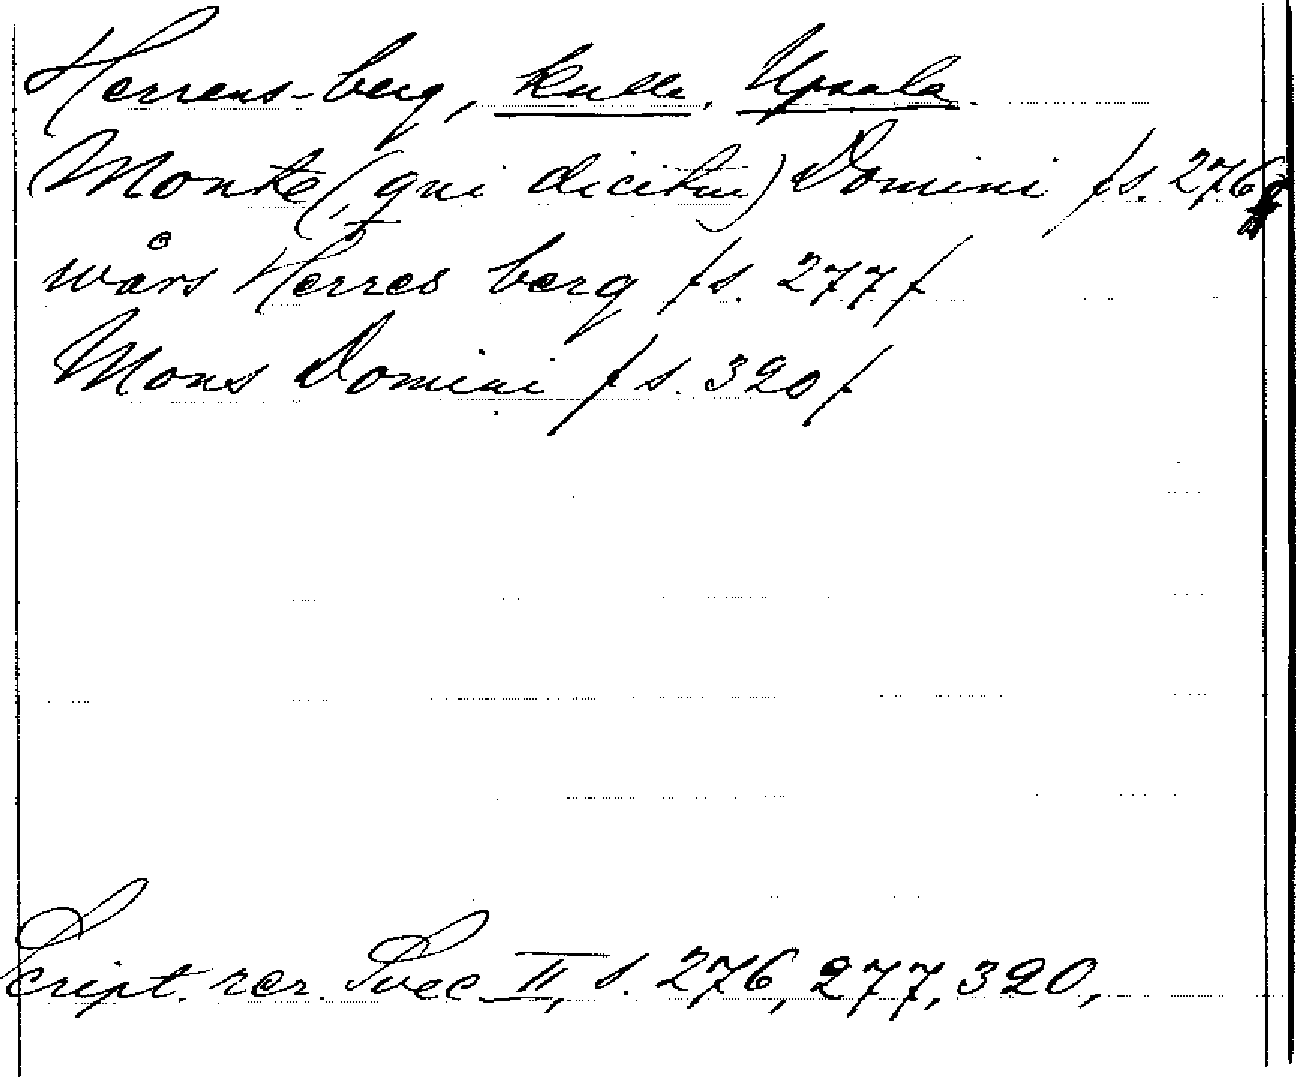 Herrens-berg, kulle, Upsala.
Monte (qui dicitur) Domini /s. 276/
wårs Herres berg /s. 277/
Mons Domini /s. 320/
Script. rer. Svec. II, s. 276, 277, 320,